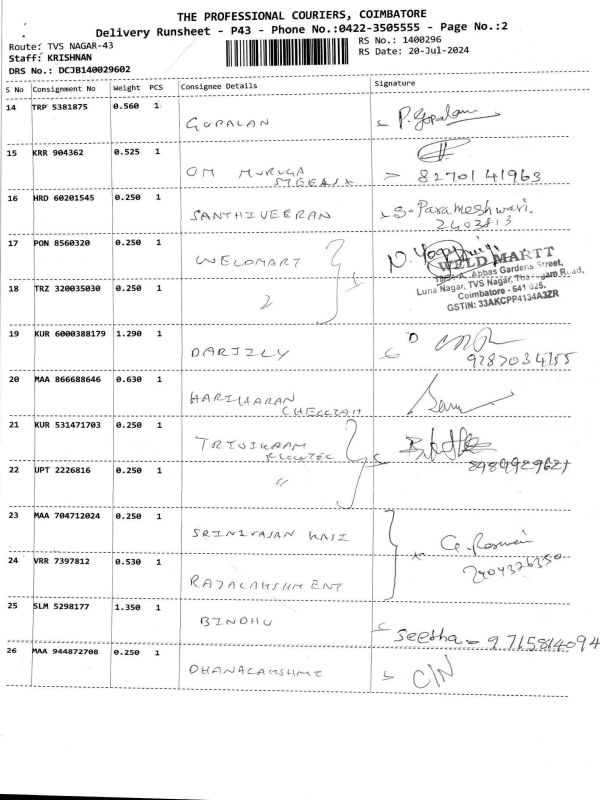 THE PROFESSIONAL COURIERS, COIMBATORE
Delivery Runsheet - P43 - Phone No.:0422-3505555 - Page No.:2
Route: TVS NAGAR-43
RS No.: 1400296
Staff: KRISHNAN
RS Date: 20-Jul-2024
DRS No.: DCJB140029602
S No Consignment No Weight PCS Consignee Details Signature
14 TRP 5381875 0.560 1
GOPALAN P. Gopalan
15 KRR 904362 0.525 1
OM MURUGA
8270141963
16 HRD 60201545 0.250 1
SANTHIVEERAN S. Parameshwari.
2403813
17 PON 8560320 0.250 1
WELDMART
WELD MARTT
Abbas Gardens Street,
Luna Nagar, TVS Nagar, Road,
Coimbatore - 641 025.
GSTIN: 33AKCPP4134A3ZR
18 TRZ 320035030 0.250 1
2
19 KUR 6000388179 1.290 1
DARJILY
20 MAA 866688646 0.630 1
HARIHARAN
CHELLIAH
21 KUR 531471703 0.250 1
TRIVIKRAM
FLOWTEC
22 UPT 2226816 0.250 1
"
23 MAA 704712024 0.250 1
SRINIVASAN
24 VRR 7397812 0.530 1
25 SLM 5298177 1.350 1
BINDHU
Seetha = 9715814094
26 MAA 944872708 0.250 1
DHANALAKSHMI C/N